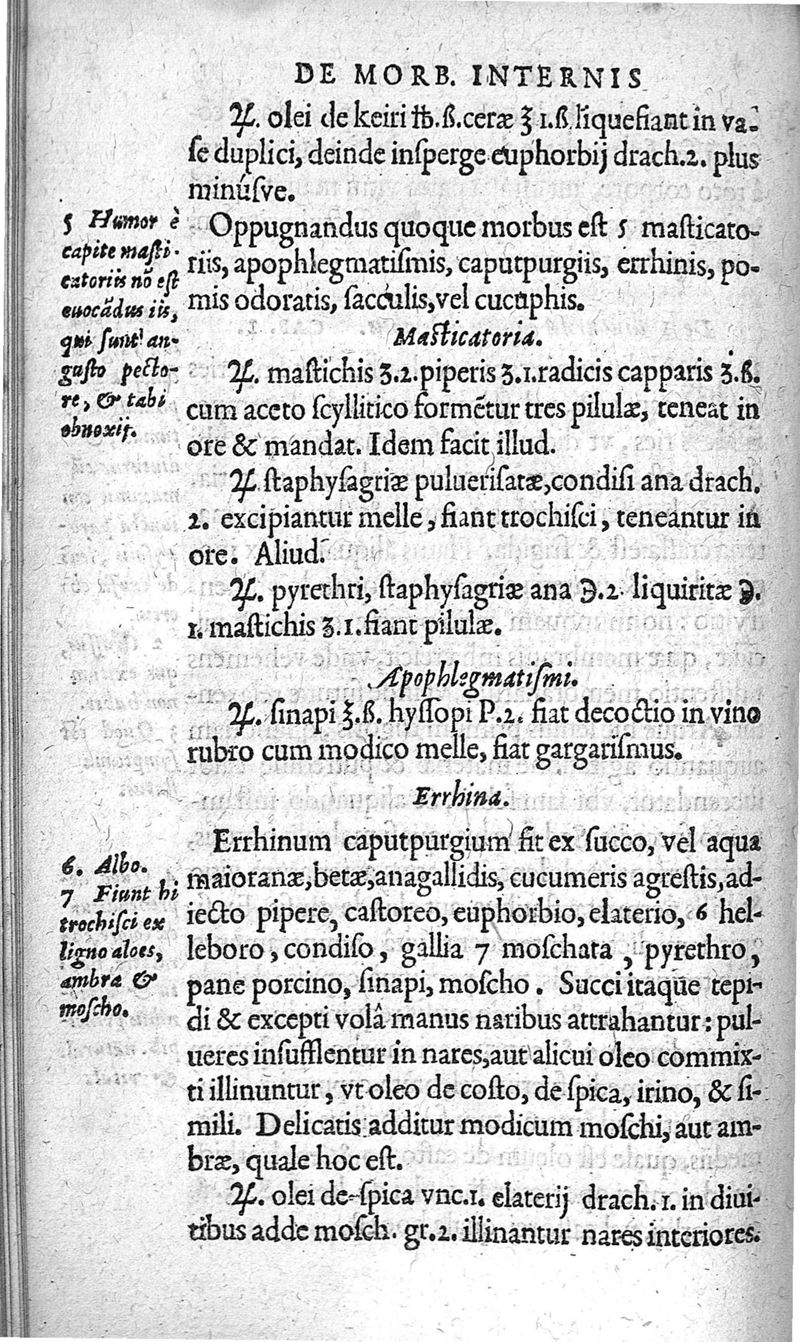 DE MORB. INTERNIS
℞. olei de keiri ℔.ß.ceræ ℥ 1.ß.liquefiant in va-
ſe duplici, deinde inſperge euphorbij drach.2. plus
minúſve.
Oppugnandus quoque morbus eſt 5 maſticato-
riis, apophlegmatiſmis, caputpurgiis, errhinis, po-
mis odoratis, ſacculis,vel cucuphis.
5 Humor è
capite maſti-
catoriis nō eſt
euocādus iis,
qui ſunt an-
guſto pecto-
re, & tabi
obnoxij.
Maſticatoria.
℞. maſtichis ʒ.2.piperis ʒ.1.radicis capparis ʒ.ß.
cum aceto ſcyllitico formētur tres pilulæ, teneat in
ore & mandat. Idem facit illud.
℞. ſtaphyſagriæ pulueriſatæ,condiſi ana drach.
2. excipiantur melle, fiant trochiſci, teneantur in
ore. Aliud.
℞. pyrethri, ſtaphyſagriæ ana ℈.2. liquiritæ ℈.
1. maſtichis ʒ.1.fiant pilulæ.
Apophlegmatiſmi.
℞. ſinapi ʒ.ß. hyſſopi P.2. fiat decoctio in vino
rubro cum modico melle, fiat gargariſmus.
Errhina.
Errhinum caputpurgium fit ex ſucco, vel aqua
maioranæ,betæ,anagallidis, cucumeris agreſtis,ad-
iecto pipere, caſtoreo, euphorbio, elaterio, 6 hel-
leboro, condiſo, gallia 7 moſchata, pyrethro,
pane porcino, ſinapi, moſcho. Succi itaque tepi-
di & excepti volâ manus naribus attrahantur: pul-
ueres inſufflentur in nares,aut alicui oleo commix-
ti illinuntur, vt oleo de coſto, de ſpica, irino, & ſi-
mili. Delicatis additur modicum moſchi, aut am-
bræ, quale hoc eſt.
6. Albo.
7 Fiunt hi
trochiſci ex
ligno aloes,
ambra &
moſcho.
℞. olei de ſpica vnc.1. elaterij drach.1. in diui-
tibus adde moſch. gr.2. illinantur nares interiores.